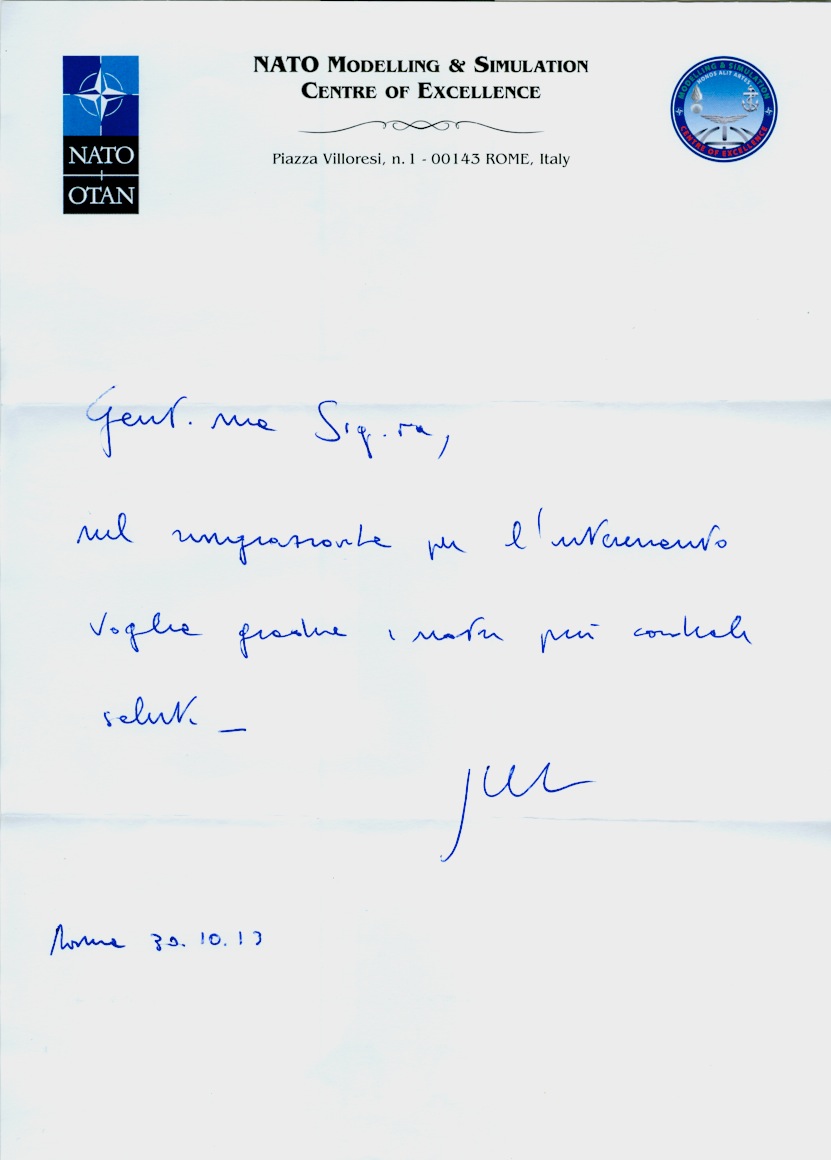 NATO
OTAN
NATO MODELLING & SIMULATION
CENTRE OF EXCELLENCE
Piazza Villoresi, n.1 - 00143 ROME, Italy
MODELLING & SIMULATION
CENTRE OF EXCELLENCE
Gent.ma Sig.ra,
nel ringraziarla per l'interessamento
voglia gradire i nostri più cordiali
saluti _
Roma 30.10.13